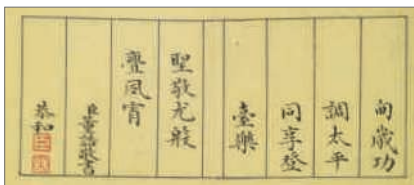 甸歲功
調太平
同享登
臺樂
聖敬尤殷
亹夙宵
臣董誥敬書
恭和